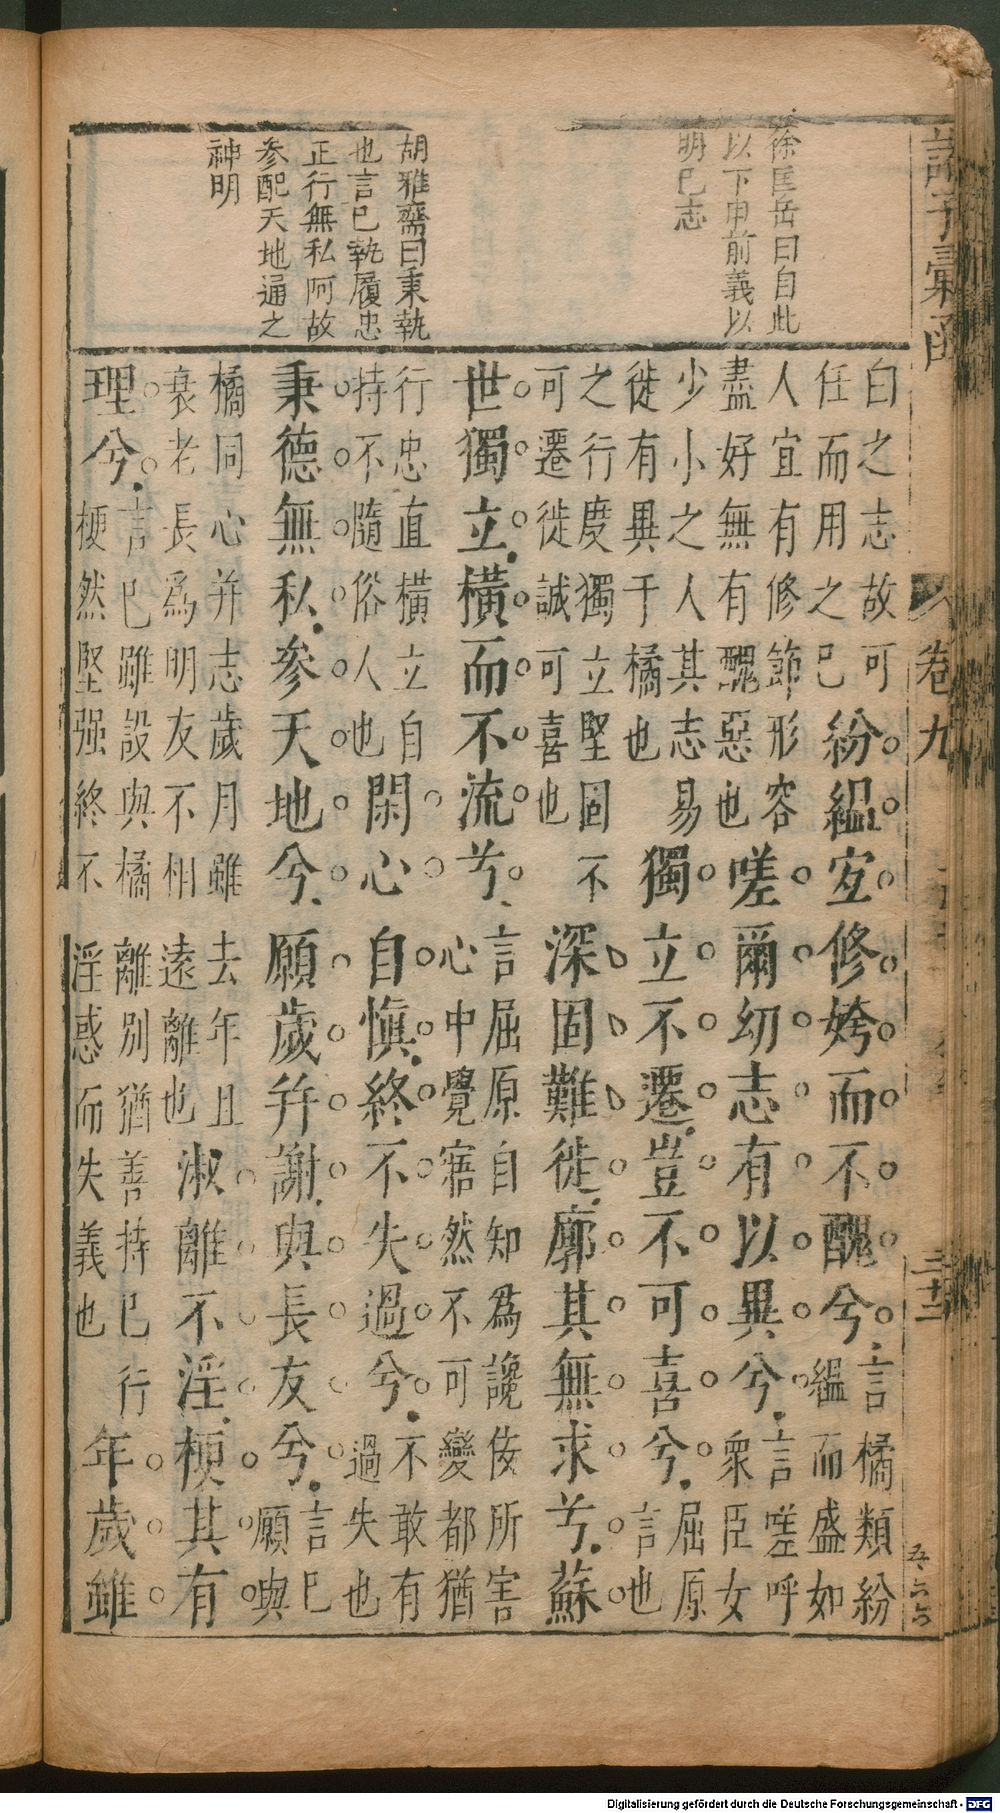 諸子彙函
卷九
三十二
徐匡岳曰自此
以下申前義以
明已志
胡雅齋曰秉執
也言已執履忠
正行無私阿故
参配天地通之
神明
白之志故可
任而用之已
紛緼宜修姱而不醜兮
言橘類紛
緼而盛如
人宜有修飾形容
盡好無有醜惡也
嗟爾幼志有以異兮
言嗟呼
衆臣女
少小之人其志易
徙有異于橘也
獨立不遷豈不可喜兮
屈原
言也
之行度獨立堅固不
可遷徙誠可喜也
深固難徙廓其無求兮蘇
世獨立橫而不流兮
言屈原自知爲讒佞所害
心中覺寤然不可變都猶
行忠直橫立自
持不隨俗人也
閑心自慎終不失過兮
不敢有
過失也
秉德無私参天地兮願歲并謝與長友兮
言已
願與
橘同心并志歲月雖去年且
衰老長爲明友不相遠離也
淑離不淫梗其有
理兮
言已雖設與橘離別猶善持已行
梗然堅强終不淫惑而失義也
年歲雖
Digitalisierung gefördert durch die Deutsche Forschungsgemeinschaft - DFG